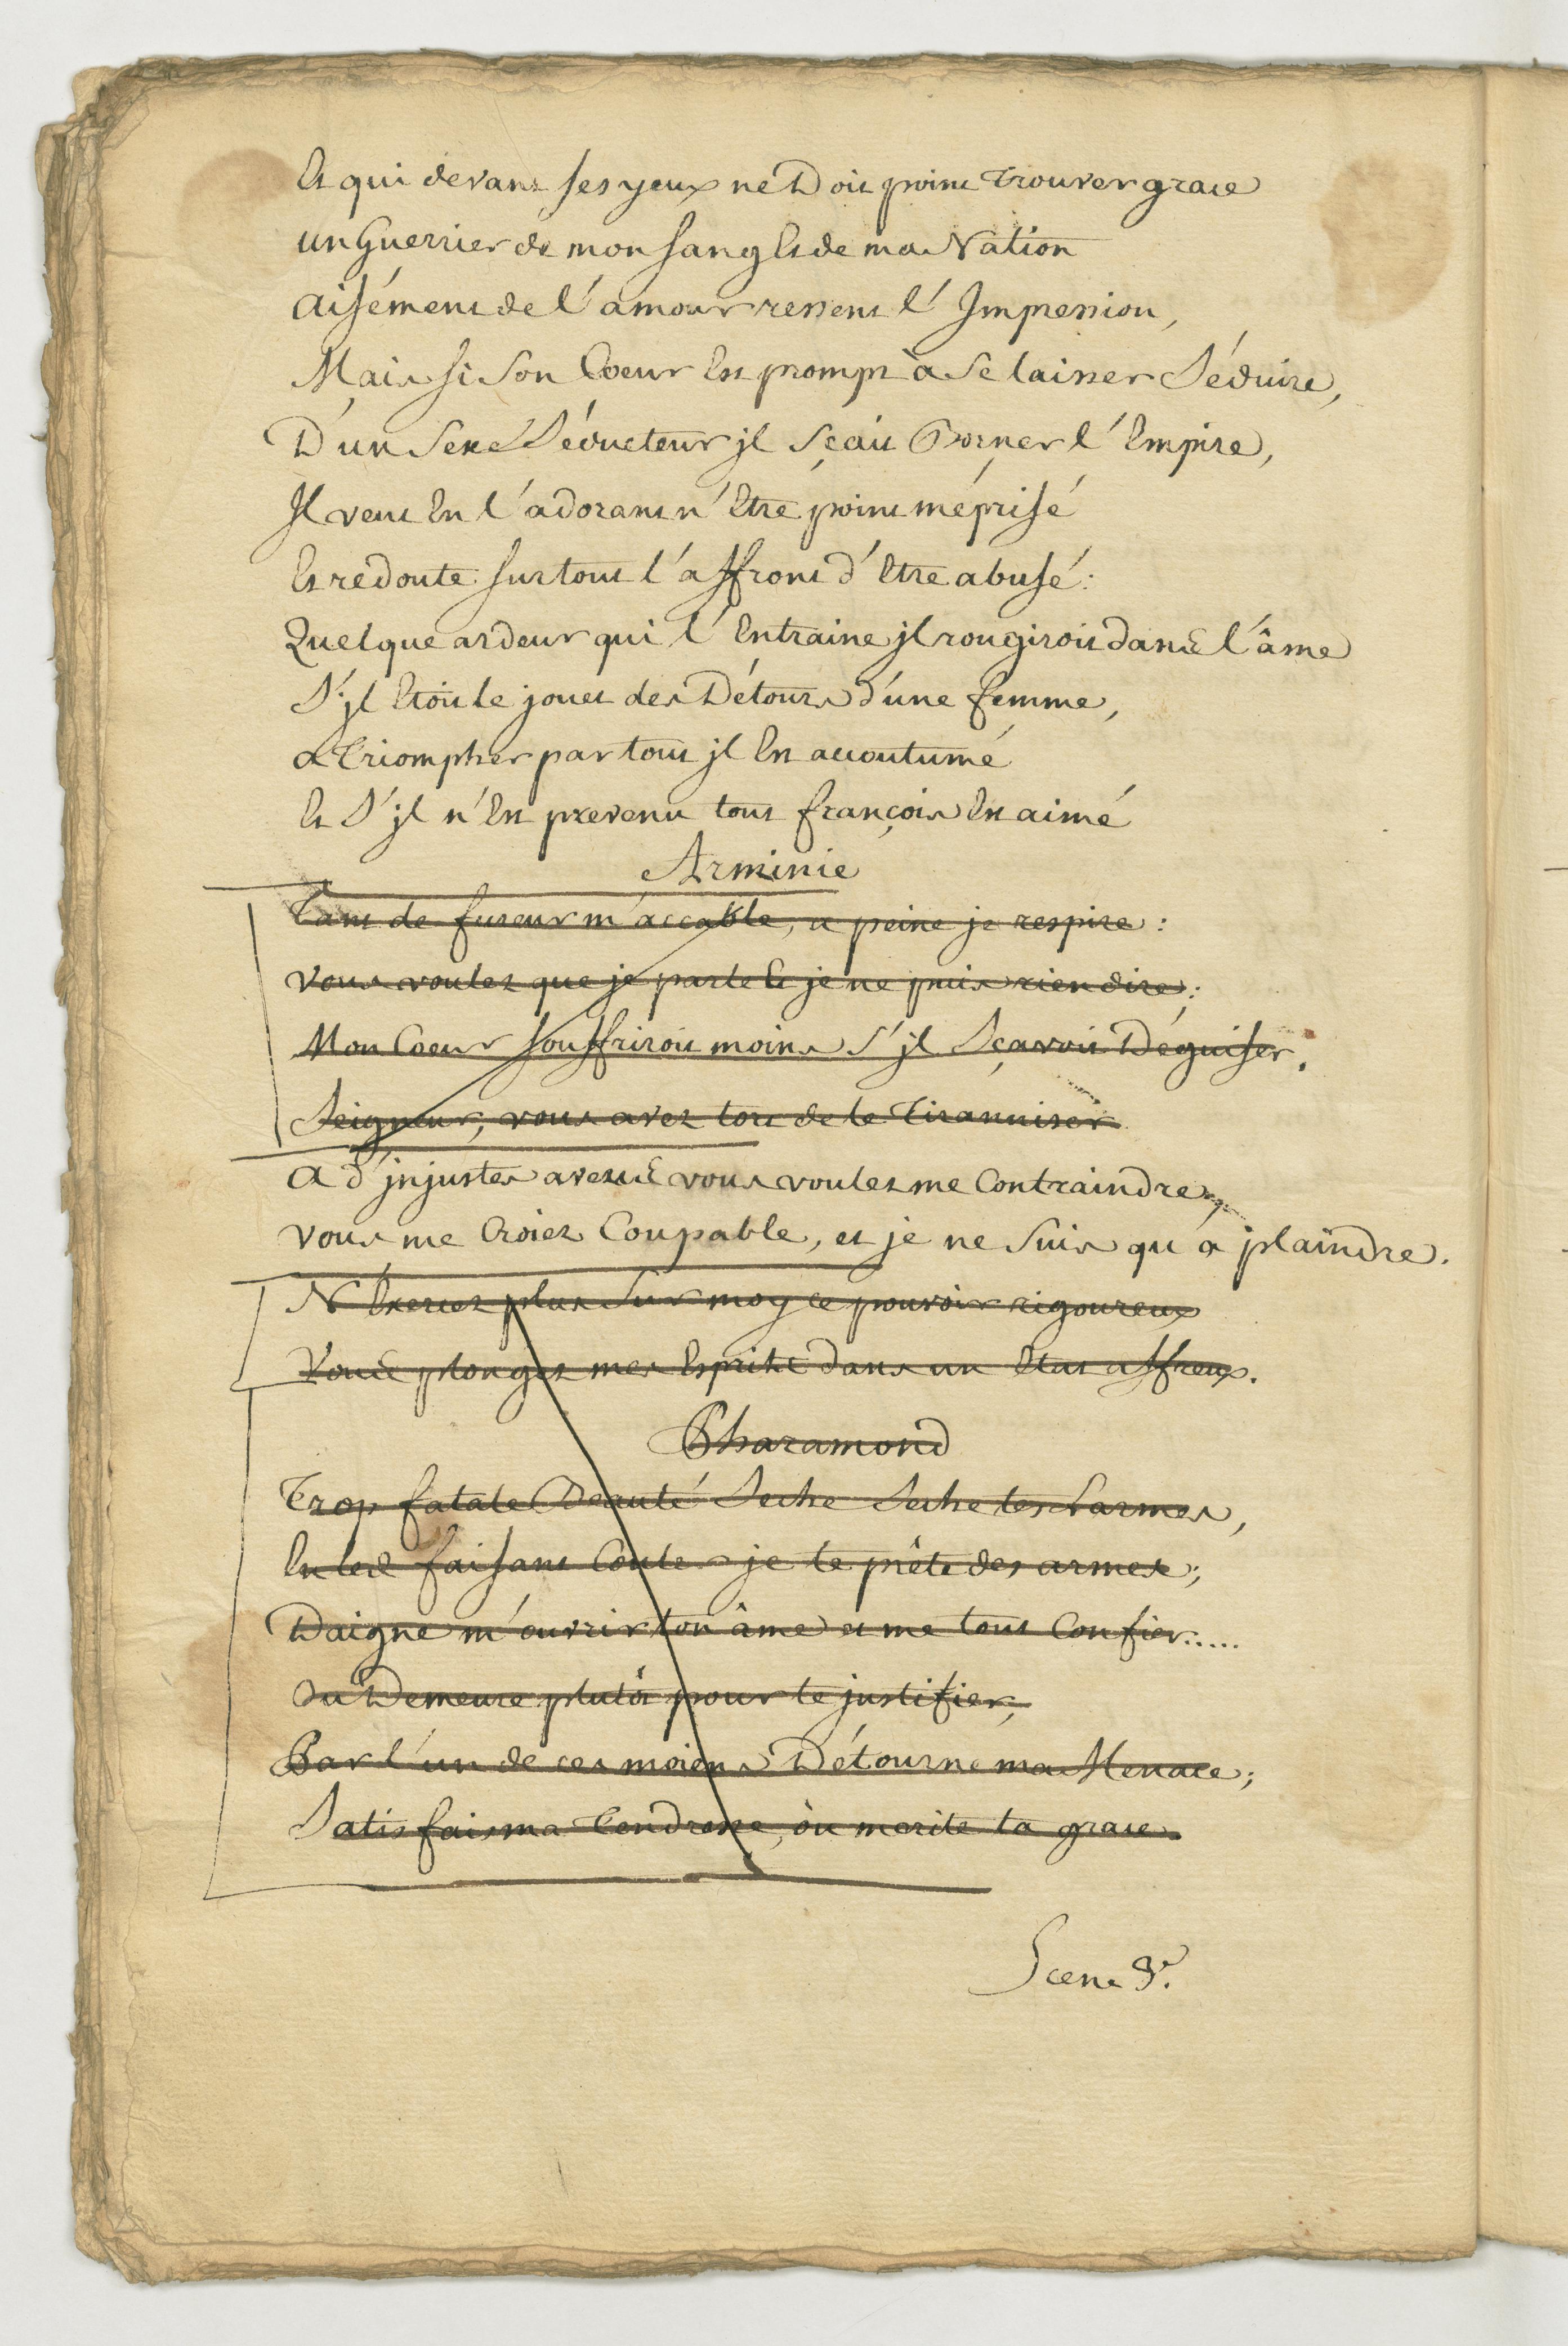 Et qui devant ses yeux ne Doit point trouver grace
un Guerrier de mon sang Et de ma Nation
aisément de l'amour ressent l'Impression,
Mais si son Coeur Est prompt à se laisser Séduire,
D'un Sexe Séducteur jl sçait Borner l'Empire,
Il veut En l'adorant n'Etre point méprisé
Et redoute surtout l'affront d'Etre abusé:
Quelque ardeur qui l'Entraine jl rougiroit dans l'âme
S'jl Etoit le jouet des Détours d'une femme,
a Triompher par tout jl Est accoutumé
Et S'jl n'Est prevenu tout françois Est aimé
Arminie
Tant de fureur m'accable, a peine je respire:
Vous voulez que je parle Et je ne puis rien dire;
Mon Coeur souffriroit moins s'jl Sçavoit Déguiser.
Seigneur, vous avez tort de le Tiranniser
a d'jnjustes aveux vous voulez me Contraindre,
Vous me Croiez Coupable, et je ne suis qu'a plaindre.
N'Exercez plus sur moy ce pouvoir rigoureux
Vous plongez mes Esprits dans un Etat affreux.
Pharamond
Trop fatale Beauté Seche Seche tes Larmes,
En les faisant Couler je te prête des armes;
Daigne m'ouvrir ton âme et me tout Confier.....
Ou Demeure plutôt pour te justifier,
Par l'un de ces moiens Détourne ma Menace;
Satisfais ma Tendresse, ou merite ta grace.
Scene 3.e